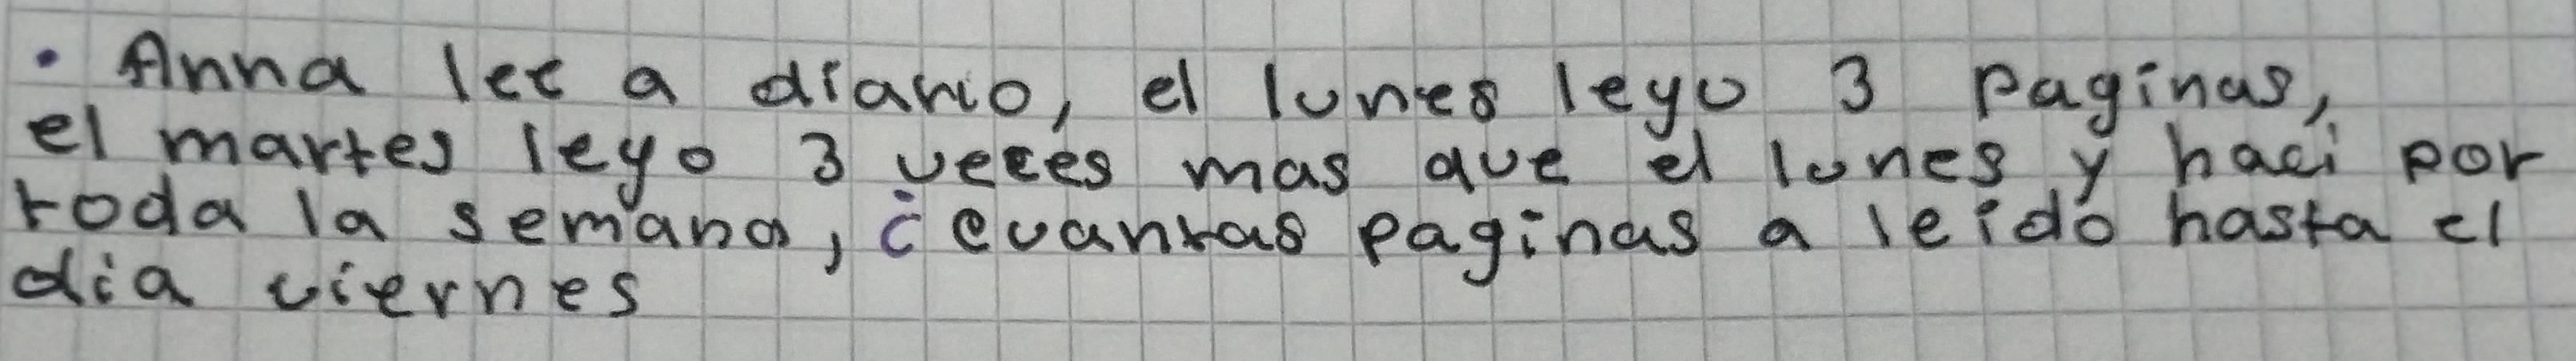 · Anna lee a diario, el lunes leyo 3 paginas,
el martes leyo 3 veces mas que el lunes y haci por
toda la semana, ¿cuantas paginas a leido hasta el
dia viernes